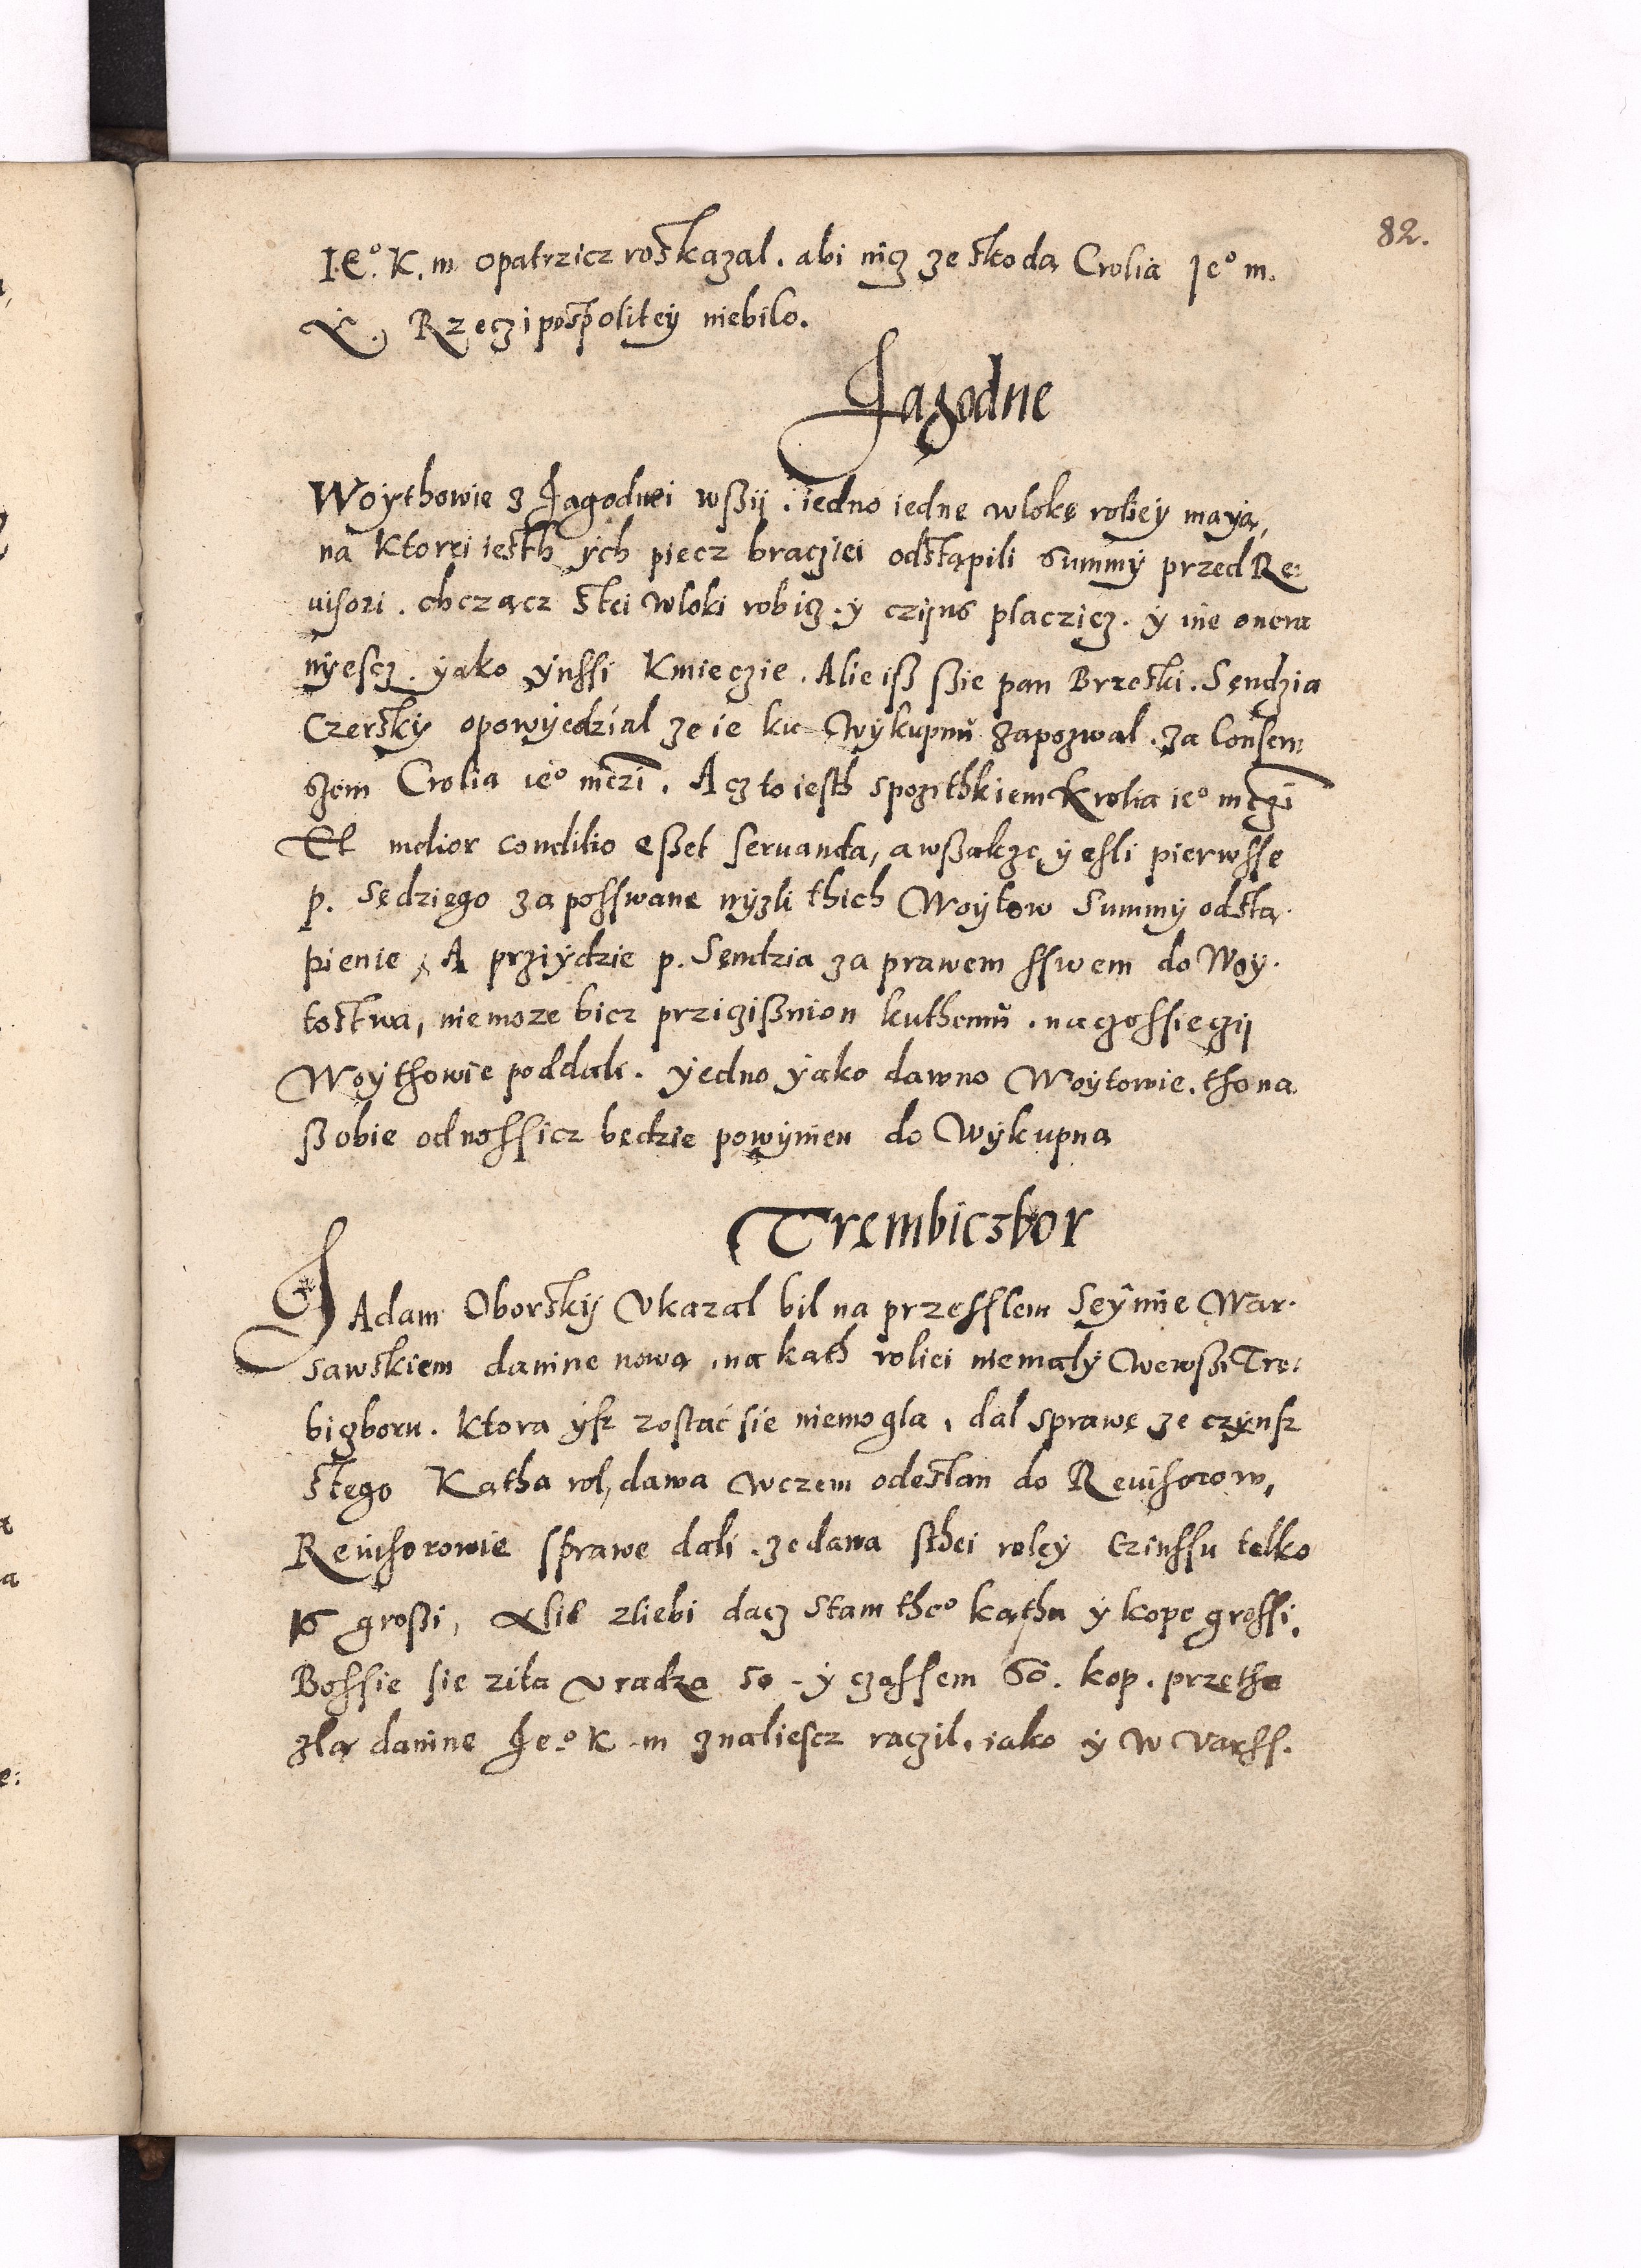 82.
I.E.º K. m opatrzicz roskazal. abi nicz ze skodą Crolia Jeº m.
X. Rzeczipospolitey niebilo.
Jagodne
Woythowie z Jagodnei wßij. iedno iedne wlokę roliey mayą,
na ktorei iesth ých piecz bracziei odstąpili summy przed Re:
uisori. chcząc stei wloki robicz. y czijns placzicz. y ine onera
nyescz. yako ynssi kmieczie. Alie iß ßie pan Brzeski. Sendzia
Czersky opowyedzial ze ie ku wykupnu zapozwal. za Consen:
szem Crolia ieº mczi. Acz to iesth spozithkiem Krolia ieº mczi
Et melior conditio eßet seruanda, a wßakze yesli pierwsse
p. Sędziego zaposswane nyzli thich Woytow summy odsta.
pienie, A prziydzie p. Sendzia za prawem sswem do Woy.
tostwa, niemoze bicz przicißnion kuthemu. naczossieczij
Woythowie poddali. yedno yako dawno Woytowie. tho na
ßobie odnossicz będzie powynien do Wykupna
Trembiczkor
J Adam Oborskij Vkazal bil na przesslem Seymie War.
sawskiem danine nową, na kąth roliei niemaly Wewßi Tre:
bigboru. Ktora ysz zostać sie niemogla, dal sprawę ze czynsz
stego Katha rol, dawa wczem odeslan do Reuisorow,
Reuisorowie sprawe dali. ze dawa sthei roley czinssu telko
16 großi, Alie zliebi dacz stam theº kąthu y kope grossi,
Bossie sie zita vradza 50 - y czassem 60. kop. przetho
zlą danine Jeº K m znaliescz raczil, iako y w Varss.